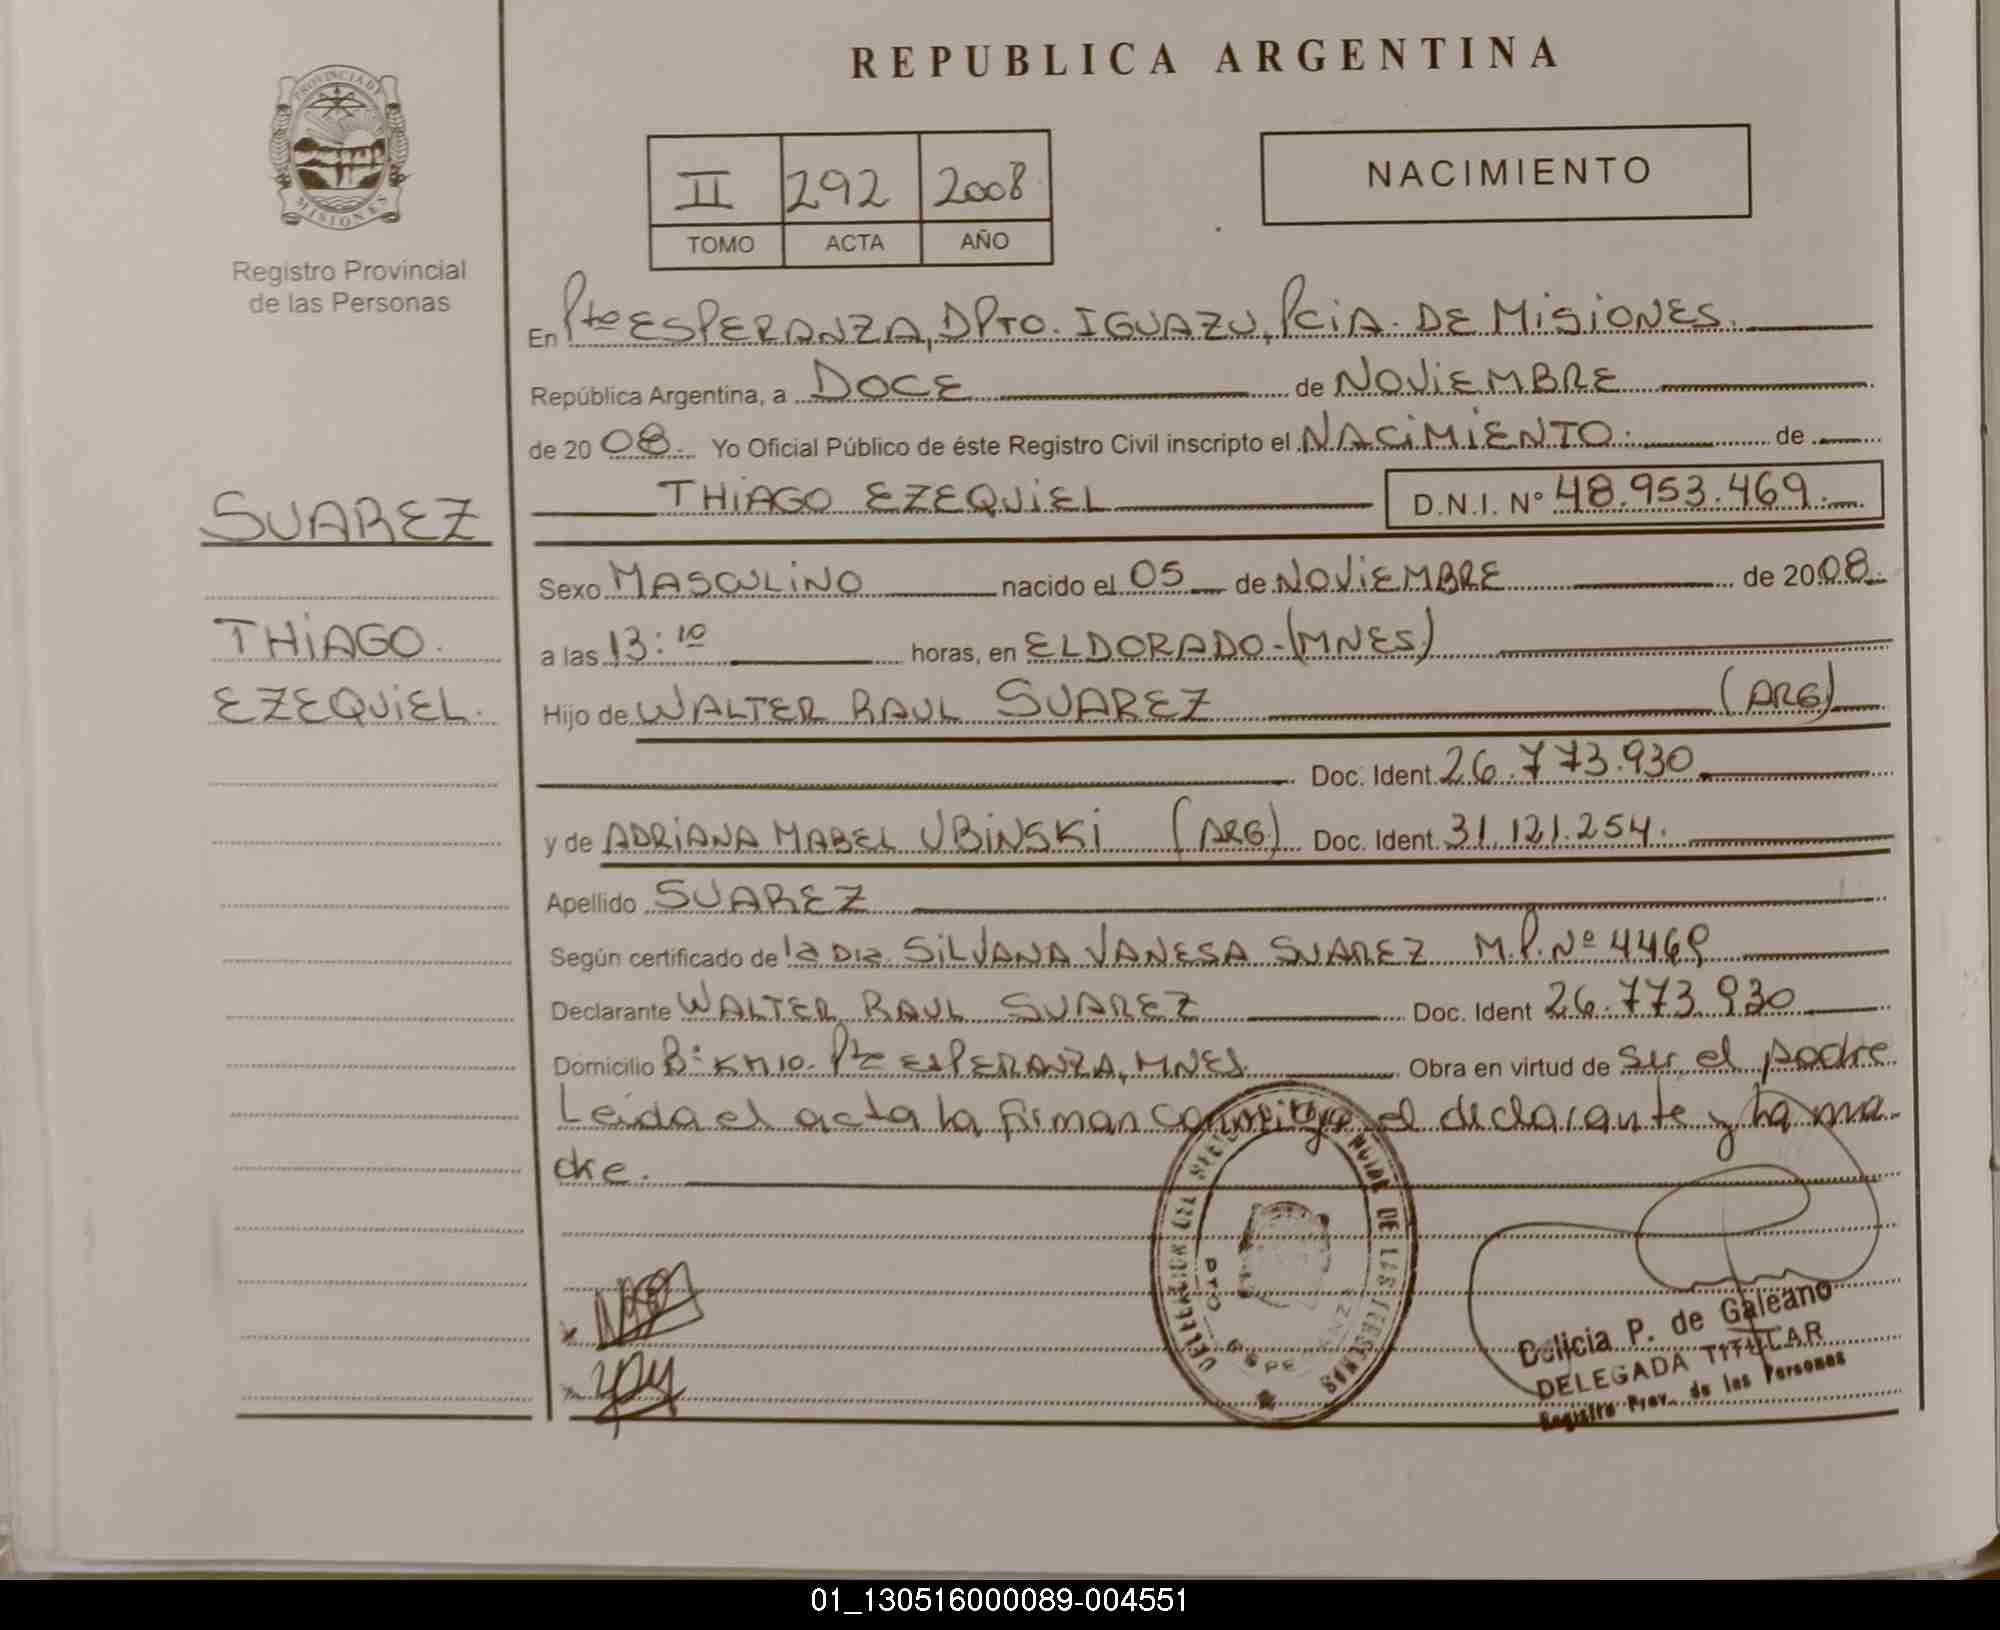 REPUBLICA ARGENTINA
PROVINCIA DE
MISIONES
Registro Provincial
de las Personas
II 292 2008
TOMO ACTA AÑO
NACIMIENTO
En Pto ESPERANZA, DPTO. IGUAZU, PCIA. DE MISIONES.
República Argentina, a DOCE de NOVIEMBRE
de 20 08. Yo Oficial Público de éste Registro Civil inscripto el NACIMIENTO. de
THIAGO EZEQUIEL D.N.I. Nº 48.953.469.
SUAREZ
THIAGO.
EZEQUIEL.
Sexo MASCULINO nacido el 05 de NOVIEMBRE de 20 08.
a las 13:10 horas, en ELDORADO-(MNES)
Hijo de WALTER RAUL SUAREZ (ARG)
Doc. Ident. 26.773.930
y de ADRIANA MABEL UBINSKI (ARG) Doc. Ident. 31.121.254.
Apellido SUAREZ
Según certificado de la DRA. SILVANA VANESA SUAREZ M.P. Nº 4469
Declarante WALTER RAUL SUAREZ Doc. Ident 26.773.930
Domicilio Bº KM 10. Pto ESPERANZA, MNES. Obra en virtud de Ser el padre
Leida el acta la firman conmigo el declarante y la ma-
dre.
DE LAS PERSONAS
DPTO
Delicia P. de Galeano
DELEGADA TITULAR
Registro Prov. de las Personas
01_130516000089-004551